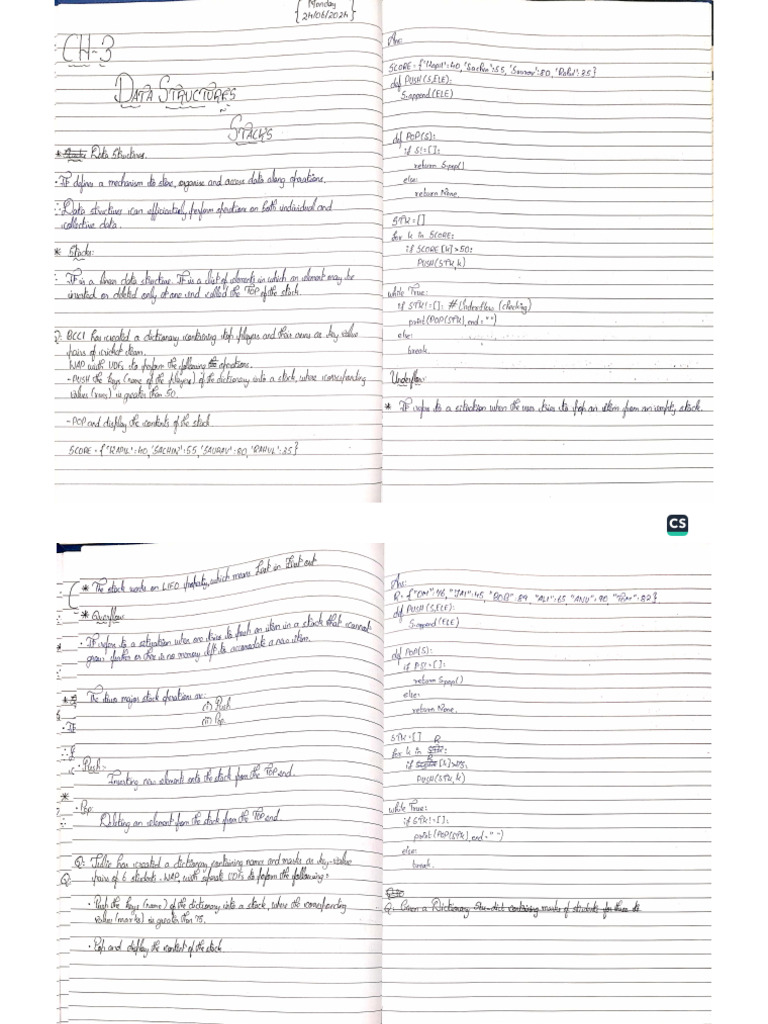 Monday
24/06/2024
CH-3
DATA STRUCTURES
STACKS
* Data Structures.
· It defines a mechanism to store, organise and access data along operations.
∴ Data structures can efficiently perform operations on both individual and
collective data.
* Stacks:
It is a linear data structure. It is a list of elements in which an element may be
inserted or deleted only at one end called the TOP of the stack.
Q: BCCI has created a dictionary containing top players and their runs as key value
pairs of cricket team.
WAP with UDFs to perform the following operations.
- PUSH the keys (name of the players) of the dictionary into a stack, where corresponding
value (runs) is greater than 50.
- POP and display the contents of the stack.
SCORE = {"KAPIL":40, 'SACHIN':55, 'SAURAV':80, 'RAHUL':35}
Ans:
SCORE = {"Kapil":40, 'Sachin':55, 'Saurav':80, 'Rahul':35}
def PUSH(S,ELE):
S.append(ELE)
def POP(S):
if S!=[]:
return S.pop()
else:
return None.
STK=[]
for k in SCORE:
if SCORE[k]>50:
PUSH(STK,k)
while True:
if STK!=[]: # Underflow (checking)
print(POP(STK),end=" ")
else:
break.
Underflow:
* It refers to a situation when the user tries to pop an item from an empty stack.
CS
* The stack works on LIFO property, which means Last in First out
* Overflow
· It refers to a situation when one tries to push an item in a stack that cannot
grow further or there is no memory left to accomodate a new item.
The two major stack operation are:
(i) Push
(ii) Pop
· Push:-
Inserting new element onto the stack from the TOP end.
· Pop:
Deleting an element from the stack from the TOP end.
Q: Julie has created a dictionary containing names and marks as key-value
pairs of 6 students. WAP, with separate UDFs to perform the following:
· Push the keys (name) of the dictionary into a stack, where the corresponding
value (marks) is greater than 75.
· Pop and display the content of the stack
Ans:
R: {"OM":76, "JAI":45, "BOB":89, "ALI":65, "ANU":90, "TOM":82}
def PUSH(S,ELE):
S.append(ELE)
def POP(S):
if P!=[]:
return S.pop()
else:
return None.
STK=[]
for k in R:
if R[k]>75:
PUSH(STK,k)
while True:
if STK!=[]:
print(POP(STK),end=" ")
else:
break.
Q: Given a Dictionary Stu-dict containing marks of students for three